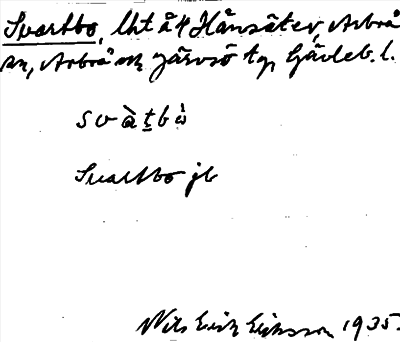 Svartbo, lht å 4 Hänsäter, Arbrå
sn, Arbrå ock Järvsö tg, Gävleb. l.
svàt̠bò
Svartbo jb
Nils Erik Eriksson 1935.